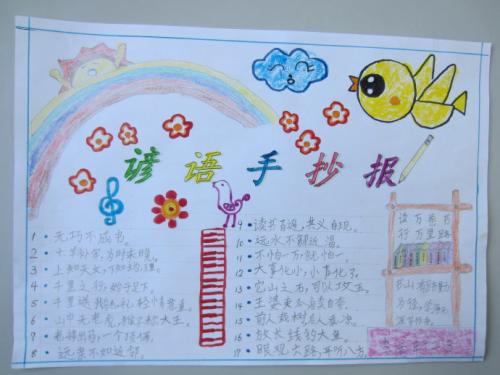 谚语手抄报
1. 无巧不成书。
2.
3. 上知天文,下知地理。
4. 千里之行,始于足下。
5. 千里送鹅毛,礼轻情意重。
6. 山中无老虎,猴子称大王。
7.
8. 远亲不如近邻。
9. 读书百遍,其义自现。
10. 远水不解近渴。
11. 不怕一万,就怕一。
12. 大事化小,小事化了。
13. 它山之石,可以攻玉。
14. 王婆卖瓜,自卖自夸。
15. 前人栽树,后人乘凉。
16. 放长线钓大鱼。
17. 眼观六路,耳听八方。
读万卷书
行万里路
书山有路勤
为径,学海无
涯苦作舟。